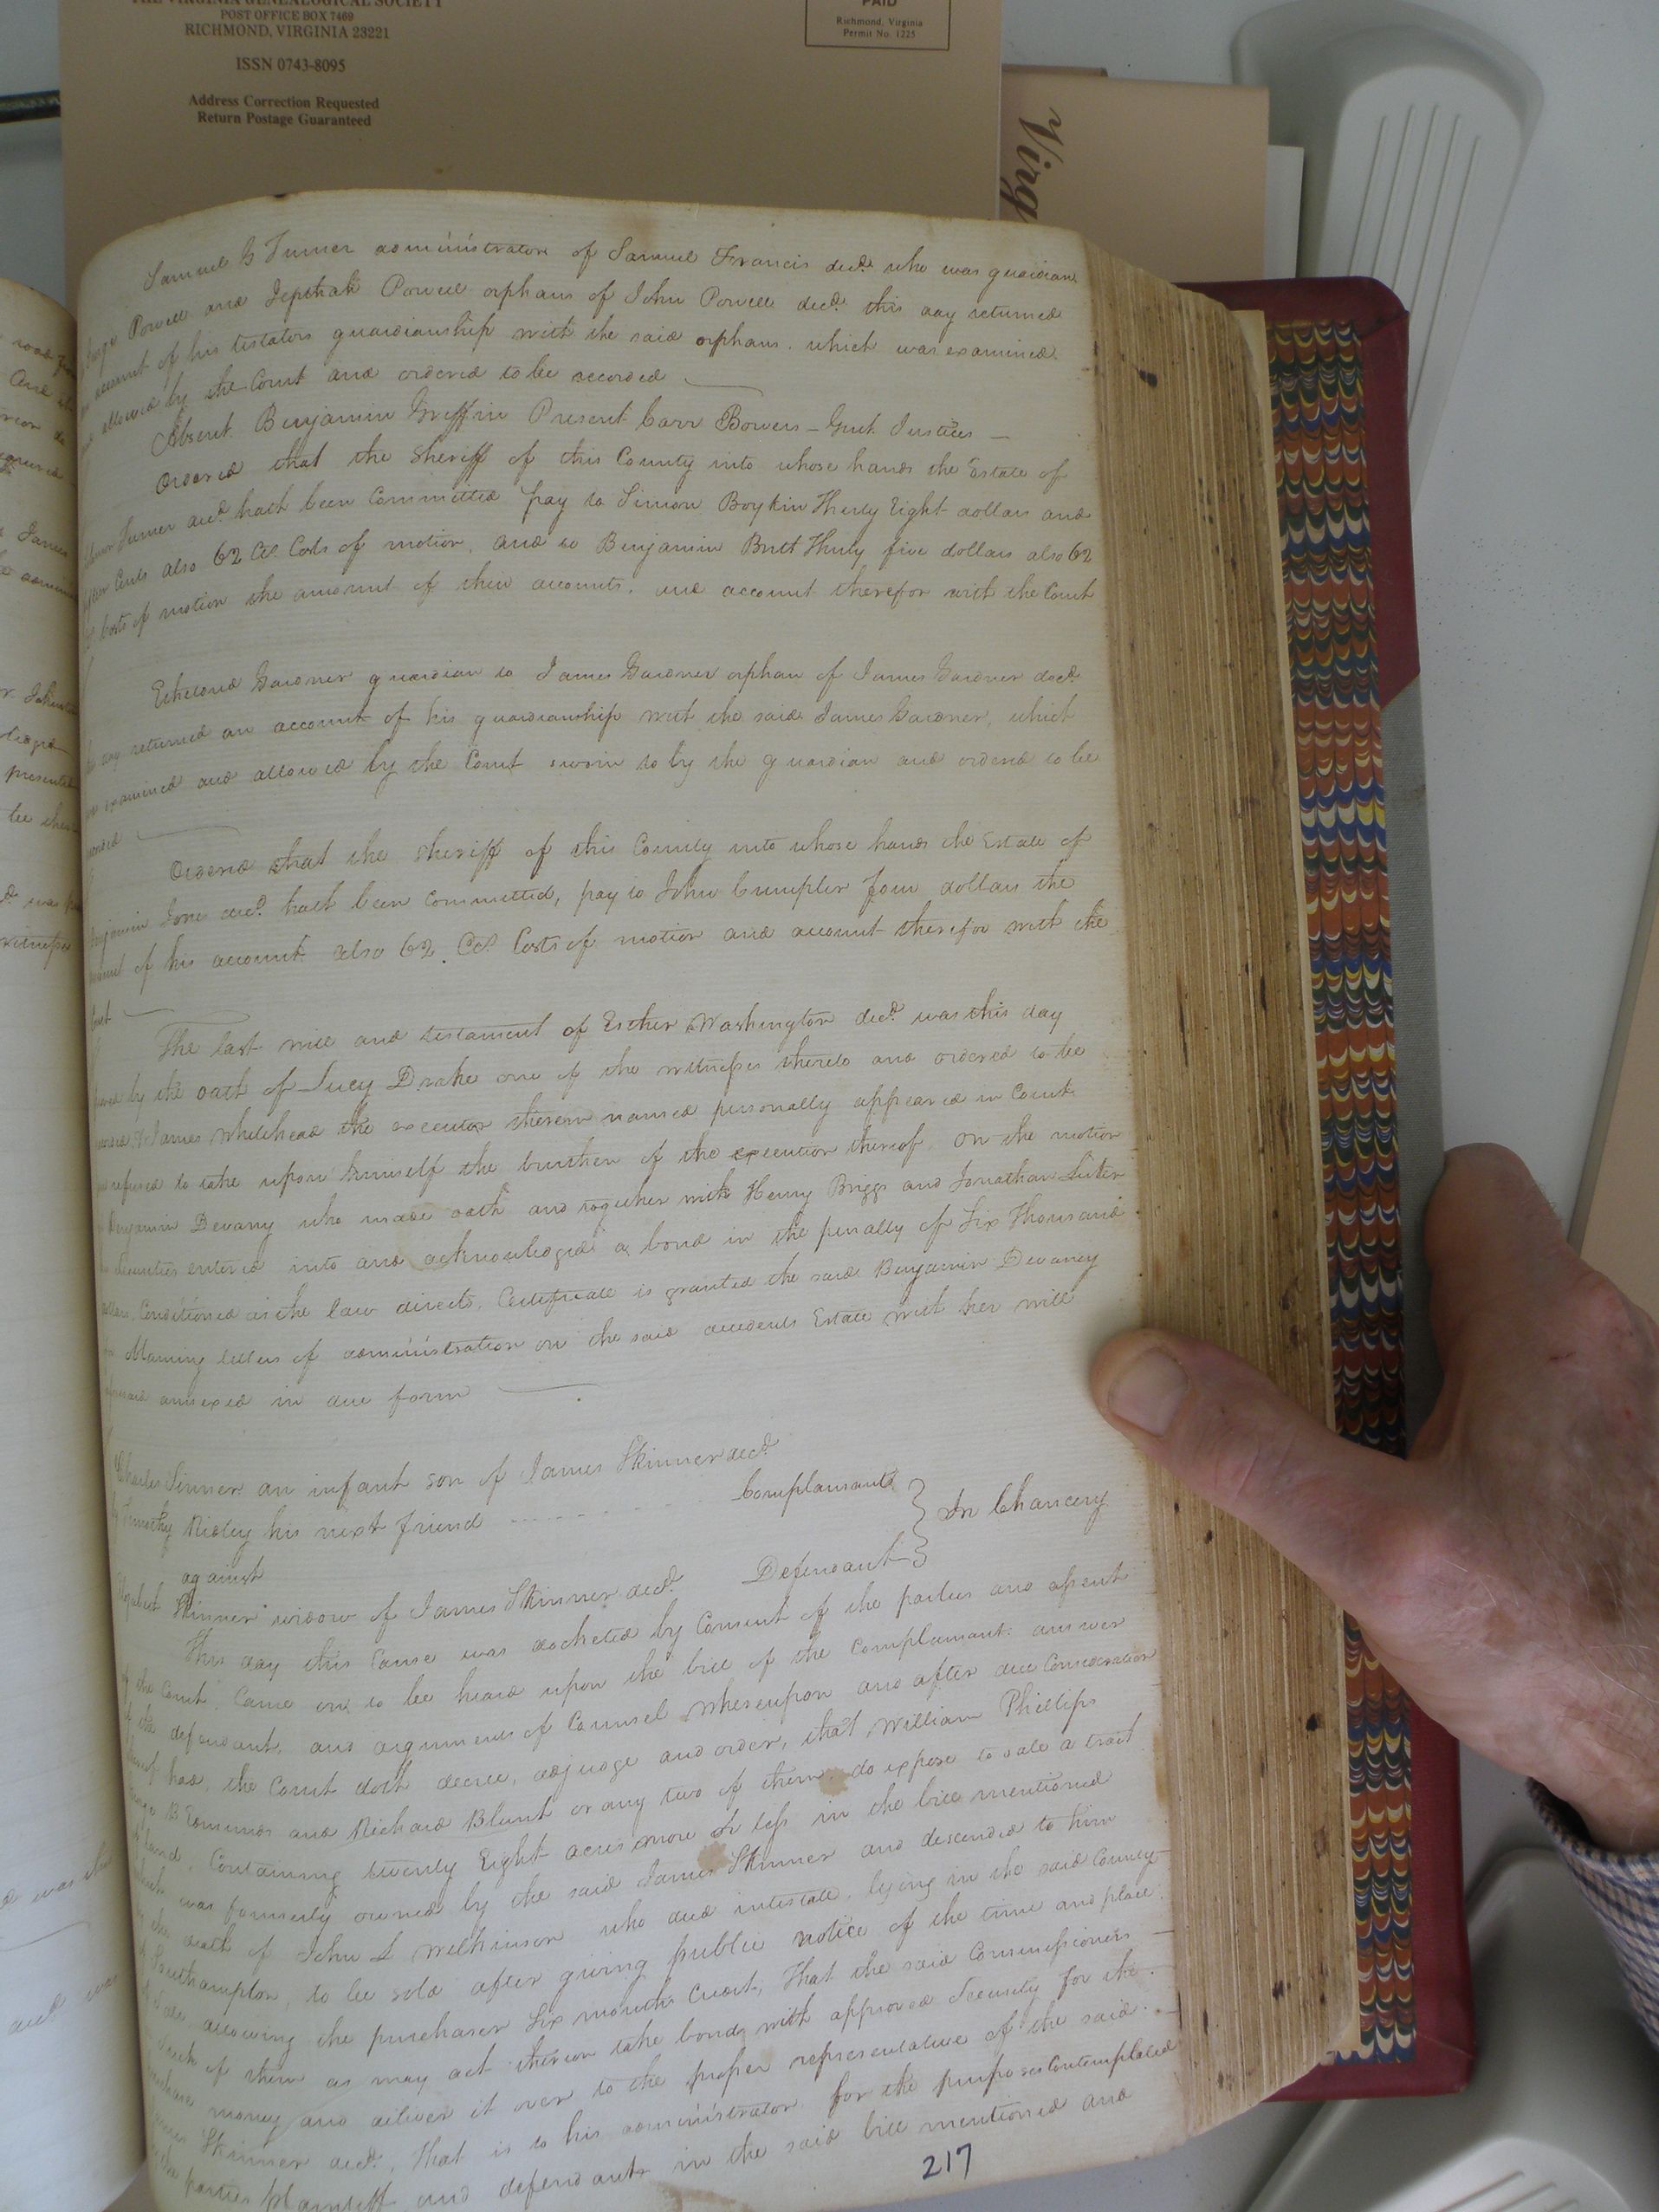 THE VIRGINIA GENEALOGICAL SOCIETY
POST OFFICE BOX 7469
RICHMOND, VIRGINIA 23221
ISSN 0743-8095
Address Correction Requested
Return Postage Guaranteed
PAID
Richmond, Virginia
Permit No. 1225
Virg
Samuel G Turner administrator of Samuel Francis decd. who was guardian
Powell and Jepthah Powell orphans of John Powell decd. this day returned
account of his testators guardianship with the said orphans. which was examined
allowed by the Court and ordered to be recorded
Absent Benjamin Griffin Present Carr Bowers - Gent Justices -
Ordered that the Sheriff of this County into whose hands the Estate of
Turner decd. hath been Committed pay to Simon Boykin Thirty Eight dollars and
Cents also 62 Cts. Costs of motion, and to Benjamin Britt Thirty five dollars also 62
Costs of motion the amount of their accounts. and account therefor with the Court
Etheldred Gardner guardian to James Gardner orphan of James Gardner decd.
day returned an account of his guardianship with the said James Gardner, which
examined and allowed by the Court sworn to by the guardian and ordered to be
Ordered that the Sheriff of this County into whose hands the Estate of
Benjamin Jones decd. hath been Committed, pay to John Crumpler four dollars the
amount of his account also 62 Cts. Costs of motion and account therefor with the
Court
The last will and testament of Esther Washington decd. was this day
proved by the oath of Lucy Drake one of the witnesses thereto and ordered to be
James Whitehead the executor therein named personally appeared in Court
refused to take upon himself the burthen of the execution thereof. On the motion
Benjamin Devany who made oath and together with Henry Briggs and Jonathan Luter
Securities entered into and acknowledged a bond in the penalty of Six Thousand
dollars, Conditioned as the law directs, Certificate is granted the said Benjamin Devaney
obtaining letters of administration on the said decedents Estate with her will
annexed in due form
Charles Skinner an infant son of James Skinner decd.
by Timothy Ridley his next friend Complainants
against } In Chancery
Skinner widow of James Skinner decd. Defendant
This day this Cause was docketed by Consent of the parties and assent
of the Court, Came on to be heard upon the bill of the Complainant. answer
of the defendant, and arguments of Counsel. Whereupon and after due Consideration
had, the Court doth decree, adjudge and order, that William Phillips
B Edmunds and Richard Blunt or any two of them do expose to sale a tract
of land, Containing twenty Eight acres more or less in the bill mentioned
which was formerly owned by the said James Skinner and descended to him
by the death of John L Wilkinson who died intestate, lying in the said County
of Southampton, to be sold after giving public notice of the time and place
of Sale allowing the purchaser Six months Credit, That the said Commissioners
or such of them as may act thereon take bond, with approved Security for the
purchase money and deliver it over to the proper representative of the said
James Skinner decd. That is to his administrator for the purposes Contemplated
by the parties plaintiff and defendant in the said bill mentioned and
217